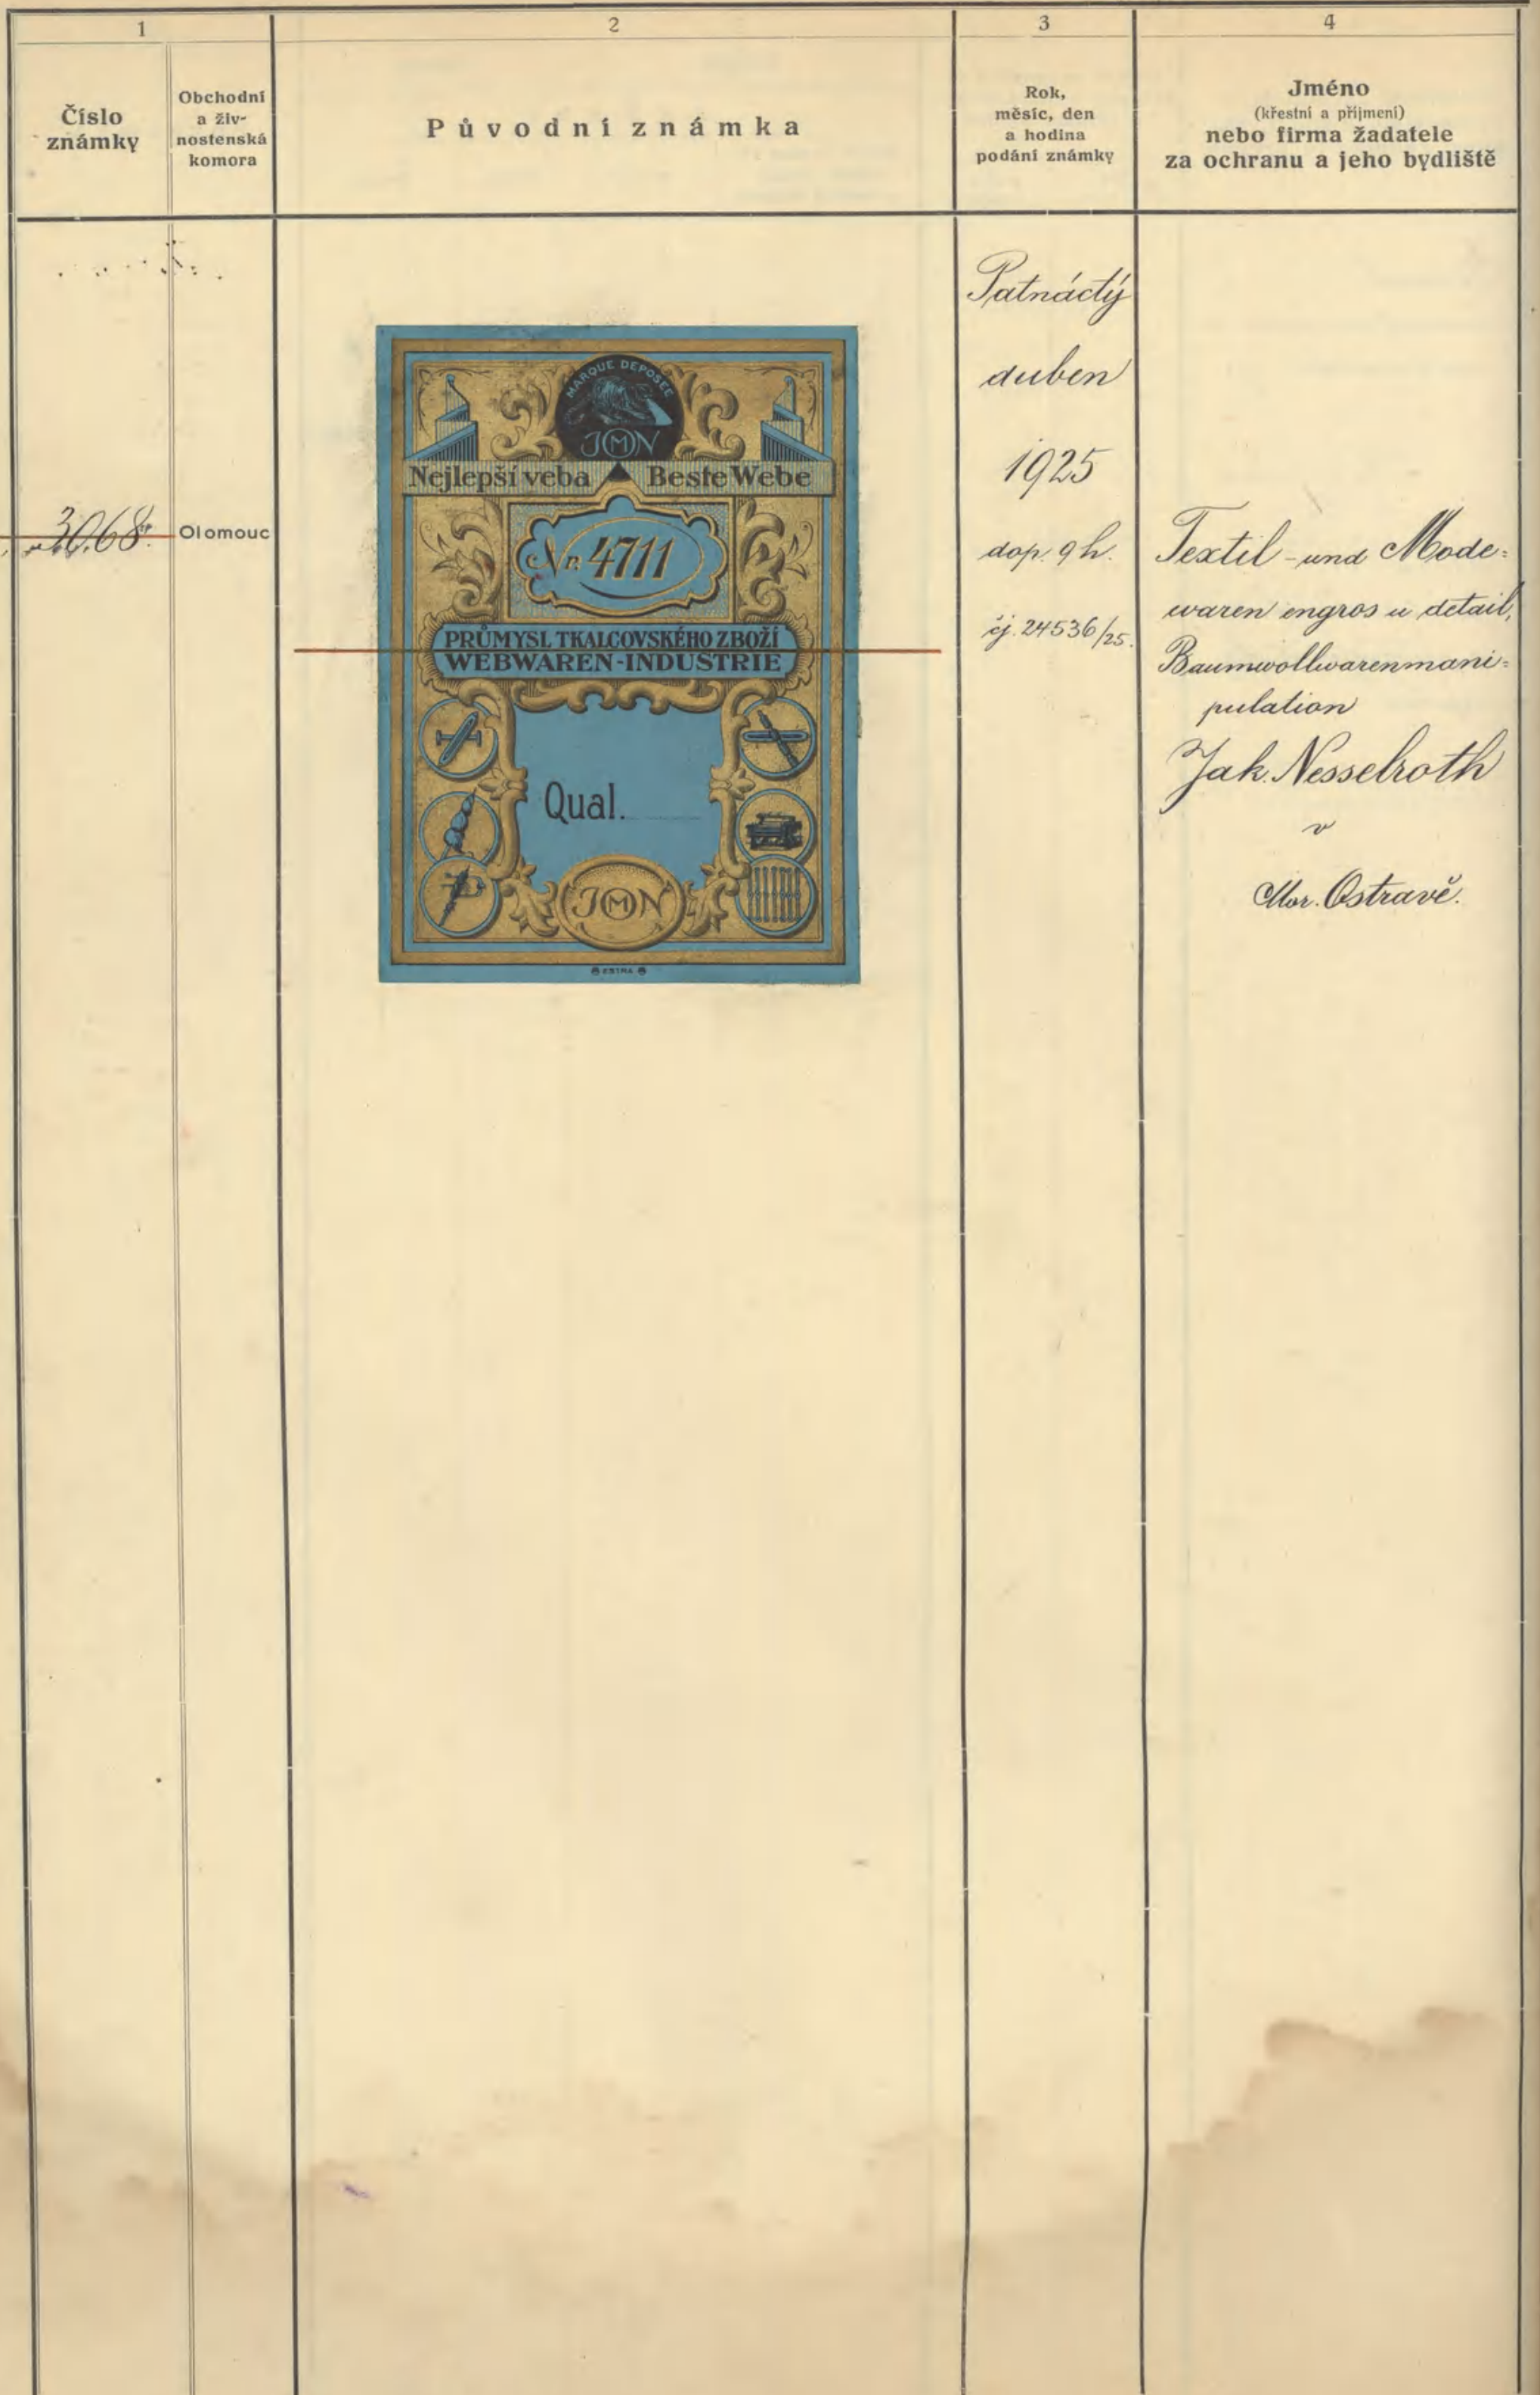 1
2
3
4
Číslo
známky
Obchodní
a živ-
nostenská
komora
Původní známka
Rok,
měsíc, den
a hodina
podání známky
Jméno
(křestní a příjmení)
nebo firma žadatele
za ochranu a jeho bydliště
3068.
Olomouc
MARQUE DEPOSÉE
JMN
Nejlepší veba Beste Webe
Nr. 4711
PRŮMYSL TKALCOVSKÉHO ZBOŽÍ
WEBWAREN-INDUSTRIE
Qual.
JMN
Patnáctý
duben
1925
dop. 9 h.
čj. 24536/25.
Textil- und Mode=
waren engros u detail,
Baumwollwarenmani=
pulation
Jak. Nesselroth
v
Mor. Ostravě.